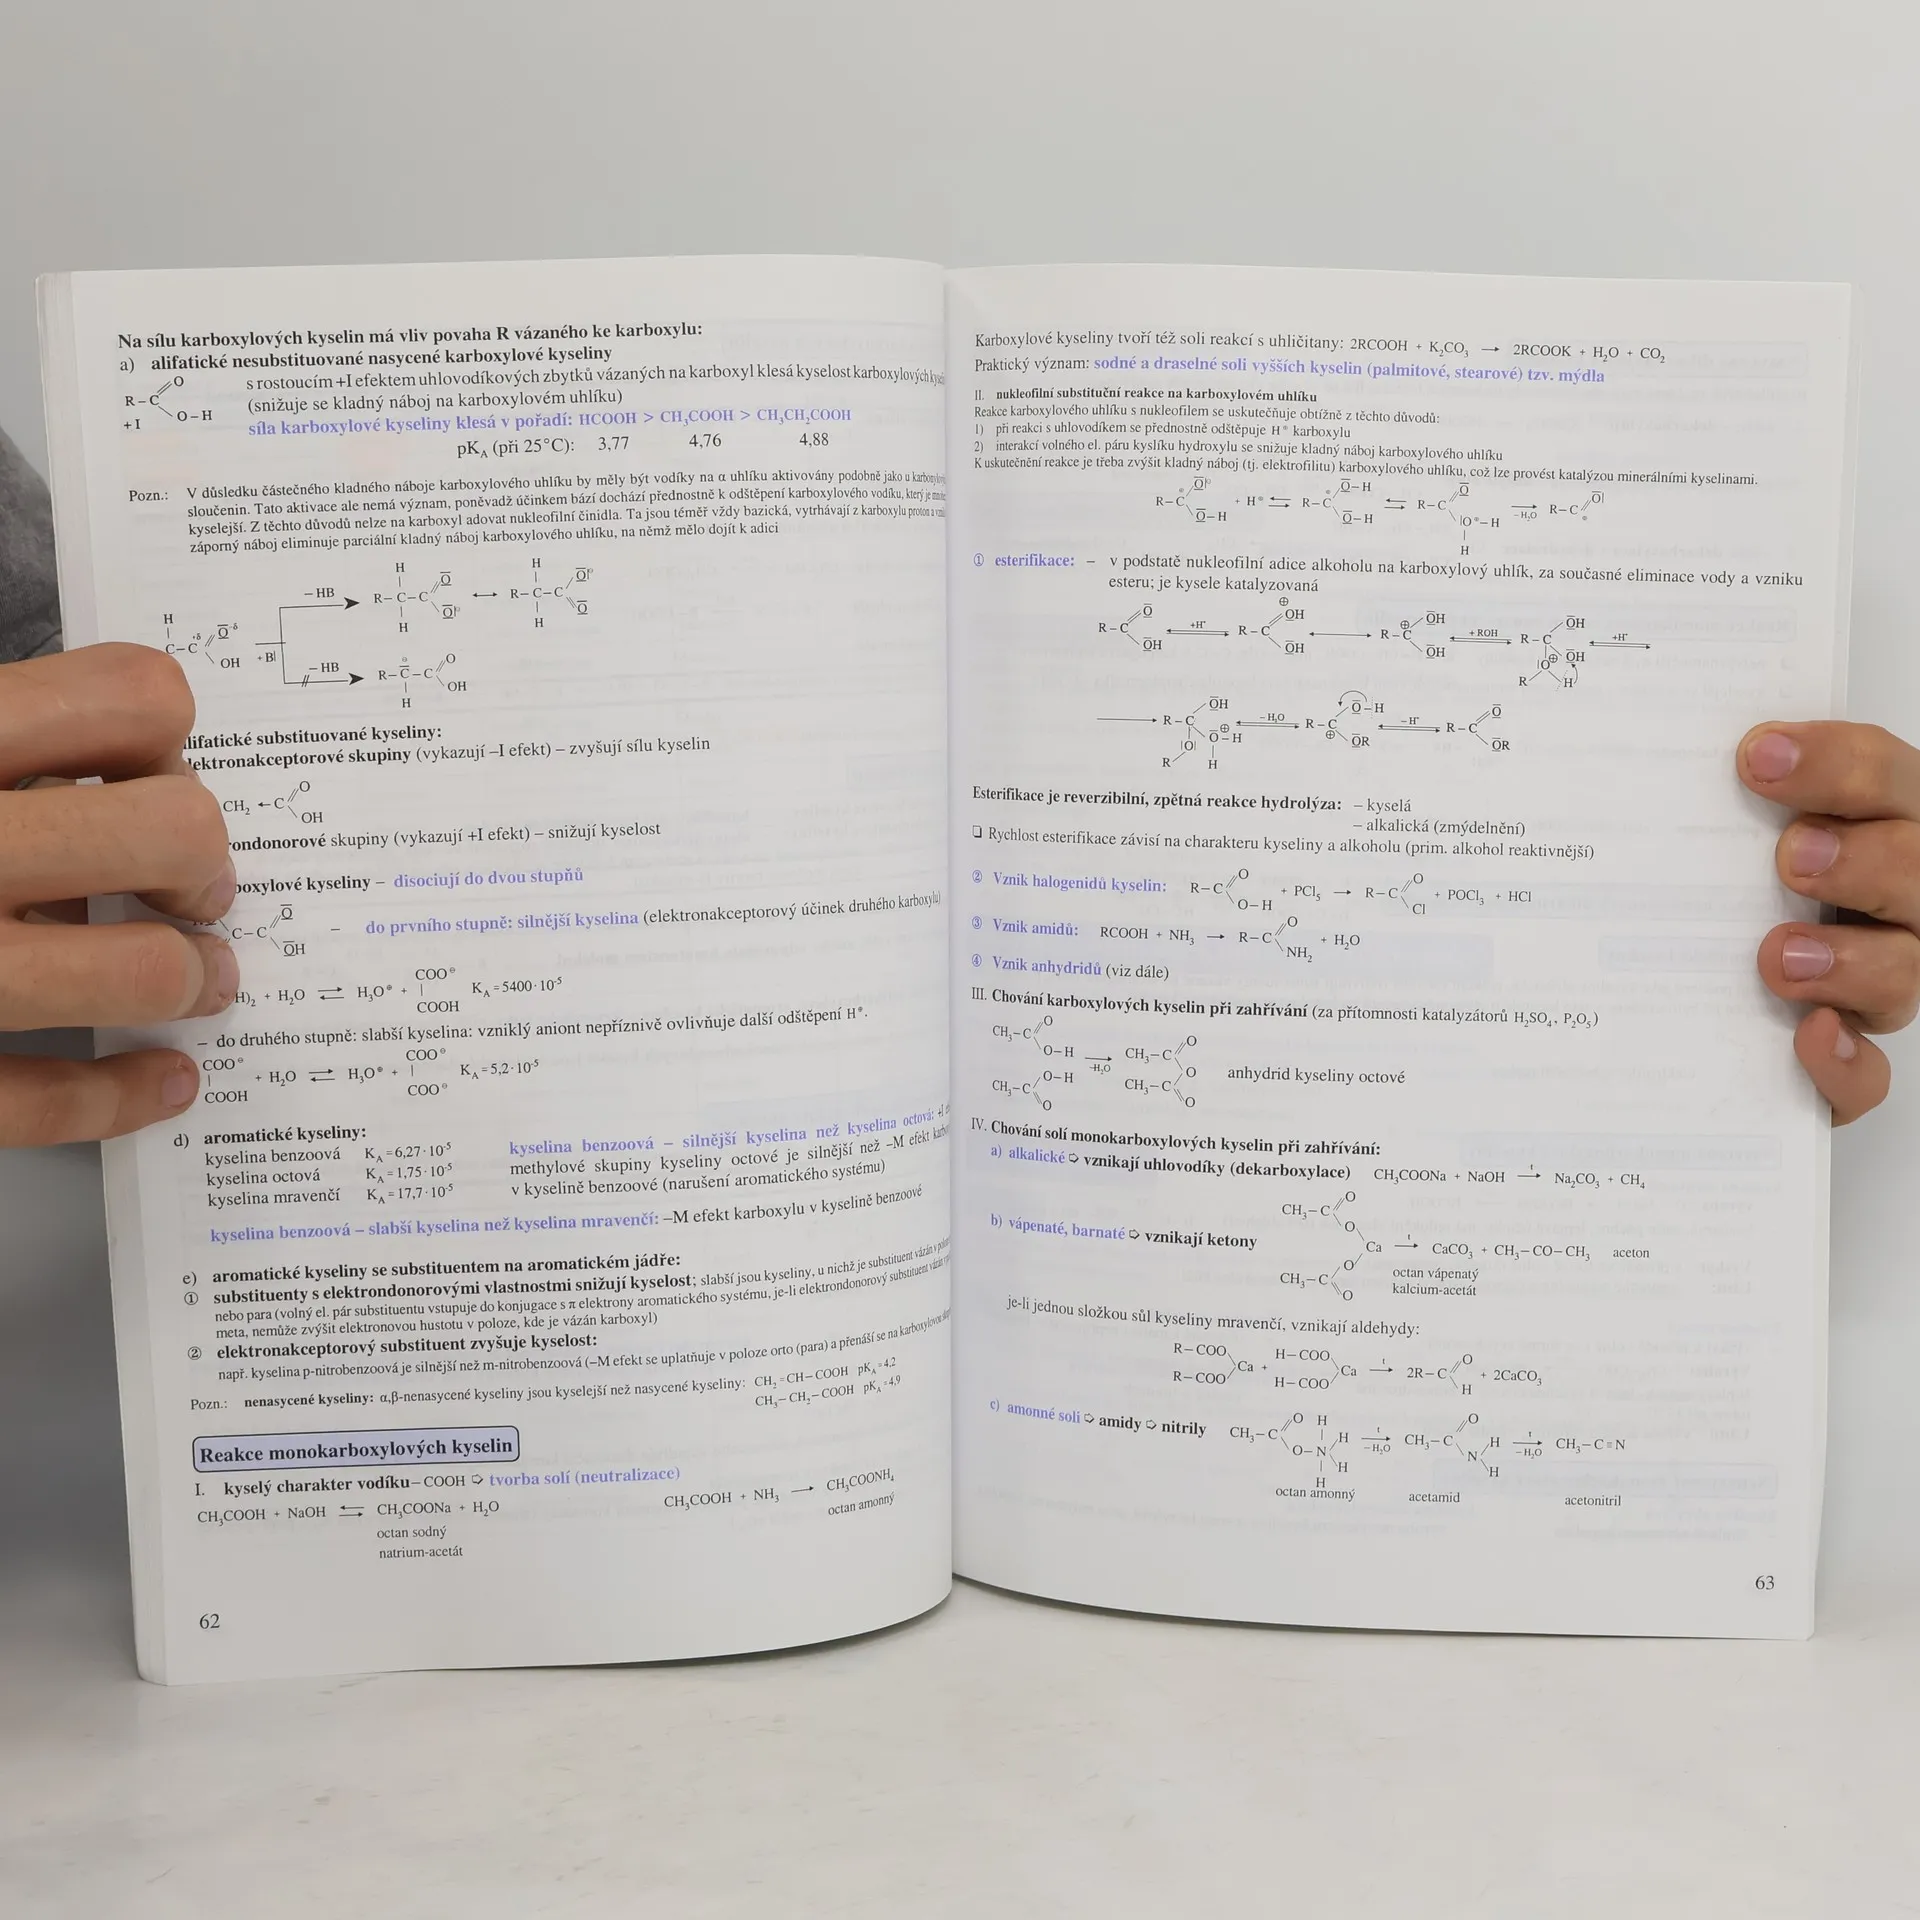 Na sílu karboxylových kyselin má vliv povaha R vázaného ke karboxylu:
a) alifatické nesubstituované nasycené karboxylové kyseliny
s rostoucím +I efektem uhlovodíkových zbytků vázaných na karboxyl klesá kyselost karboxylových
(snižuje se kladný náboj na karboxylovém uhlíku)
síla karboxylové kyseliny klesá v pořadí: HCOOH > CH₃COOH > CH₃CH₂COOH
pK_A (při 25°C): 3,77 4,76 4,88
R–C O O–H
+I
Pozn.: V důsledku částečného kladného náboje karboxylového uhlíku by měly být vodíky na α uhlíku aktivovány podobně jako u
sloučenin. Tato aktivace ale nemá význam, poněvadž účinkem bází dochází přednostně k odštěpení karboxylového vodíku, který je
kyselejší. Z těchto důvodů nelze na karboxyl adovat nukleofilní činidla. Ta jsou téměř vždy bazická, vytrhávají z karboxylu proton a
záporný náboj eliminuje parciální kladný náboj karboxylového uhlíku, na němž mělo dojít k adici
H H
– HB R–C–C O ↔ R–C–C O
H H
H C–C O OH +B|
– HB R–C–C O OH
H
alifatické substituované kyseliny:
elektronakceptorové skupiny (vykazují –I efekt) – zvyšují sílu kyselin
CH₂ ←C O OH
skupiny (vykazují +I efekt) – snižují kyselost
kyseliny – disociují do dvou stupňů
C–C O OH – do prvního stupně: silnější kyselina (elektronakceptorový účinek druhého karboxylu)
H)₂ + H₂O ⇌ H₃O⊕ + COO⊖ COOH K_A = 5400·10⁻⁵
– do druhého stupně: slabší kyselina: vzniklý aniont nepříznivě ovlivňuje další odštěpení H⁺.
COO⊖ COOH + H₂O ⇌ H₃O⊕ + COO⊖ COO⊖ K_A = 5,2·10⁻⁵
d) aromatické kyseliny:
kyselina benzoová K_A = 6,27·10⁻⁵ kyselina benzoová – silnější kyselina než kyselina octová: +I
kyselina octová K_A = 1,75·10⁻⁵ methylové skupiny kyseliny octové je silnější než –M efekt
kyselina mravenčí K_A = 17,7·10⁻⁵ v kyselině benzoové (narušení aromatického systému)
kyselina benzoová – slabší kyselina než kyselina mravenčí: –M efekt karboxylu v kyselině benzoové
e) aromatické kyseliny se substituentem na aromatickém jádře:
① substituenty s elektrondonorovými vlastnostmi snižují kyselost; slabší jsou kyseliny, u nichž je substituent vázán v
nebo para (volný el. pár substituentu vstupuje do konjugace s π elektrony aromatického systému, je-li elektrondonorový substituent vázán v
meta, nemůže zvýšit elektronovou hustotu v poloze, kde je vázán karboxyl)
② elektronakceptorový substituent zvyšuje kyselost:
např. kyselina p-nitrobenzoová je silnější než m-nitrobenzoová (–M efekt se uplatňuje v poloze orto (para) a přenáší se na
Pozn.: nenasycené kyseliny: α,β-nenasycené kyseliny jsou kyselejší než nasycené kyseliny: CH₂=CH–COOH pK_A = 4,2
CH₃–CH₂–COOH pK_A = 4,9
Reakce monokarboxylových kyselin
I. kyselý charakter vodíku–COOH ⇨ tvorba solí (neutralizace)
CH₃COOH + NaOH ⇌ CH₃COONa + H₂O CH₃COOH + NH₃ → CH₃COONH₄
octan sodný octan amonný
natrium-acetát
62
Karboxylové kyseliny tvoří též soli reakcí s uhličitany: 2RCOOH + K₂CO₃ → 2RCOOK + H₂O + CO₂
Praktický význam: sodné a draselné soli vyšších kyselin (palmitové, stearové) tzv. mýdla
II. nukleofilní substituční reakce na karboxylovém uhlíku
Reakce karboxylového uhlíku s nukleofilem se uskutečňuje obtížně z těchto důvodů:
1) při reakci s uhlovodíkem se přednostně odštěpuje H⁺ karboxylu
2) interakcí volného el. páru kyslíku hydroxylu se snižuje kladný náboj karboxylového uhlíku
K uskutečnění reakce je třeba zvýšit kladný náboj (tj. elektrofilitu) karboxylového uhlíku, což lze provést katalýzou minerálními kyselinami.
R–C O O–H + H⊕ ⇌ R–C O–H O–H ⇌ R–C O O⊕–H H –H₂O R–C O
① esterifikace: – v podstatě nukleofilní adice alkoholu na karboxylový uhlík, za současné eliminace vody a vzniku
esteru; je kysele katalyzovaná
R–C O OH +H⁺ R–C OH OH ↔ R–C OH OH + ROH R–C OH OH O R H +H⁺
R–C OH O–H H O R – H₂O R–C O–H OR – H⁺ R–C O OR
Esterifikace je reverzibilní, zpětná reakce hydrolýza: – kyselá
– alkalická (zmýdelnění)
❏ Rychlost esterifikace závisí na charakteru kyseliny a alkoholu (prim. alkohol reaktivnější)
② Vznik halogenidů kyselin: R–C O O–H + PCl₅ → R–C O Cl + POCl₃ + HCl
③ Vznik amidů: RCOOH + NH₃ → R–C O NH₂ + H₂O
④ Vznik anhydridů (viz dále)
III. Chování karboxylových kyselin při zahřívání (za přítomnosti katalyzátorů H₂SO₄, P₂O₅)
CH₃–C O O–H CH₃–C O–H O –H₂O → CH₃–C O O CH₃–C O anhydrid kyseliny octové
IV. Chování solí monokarboxylových kyselin při zahřívání:
a) alkalické ⇨ vznikají uhlovodíky (dekarboxylace) CH₃COONa + NaOH t→ Na₂CO₃ + CH₄
b) vápenaté, barnaté ⇨ vznikají ketony CH₃–C O O Ca CH₃–C O O t→ CaCO₃ + CH₃–CO–CH₃ aceton
octan vápenatý
kalcium-acetát
je-li jednou složkou sůl kyseliny mravenčí, vznikají aldehydy:
R–COO R–COO Ca + H–COO H–COO Ca t→ 2R–C O H + 2CaCO₃
c) amonné soli ⇨ amidy ⇨ nitrily CH₃–C O O–N H H H H t→ –H₂O CH₃–C O N H H t→ –H₂O CH₃–C≡N
octan amonný acetamid acetonitril
63